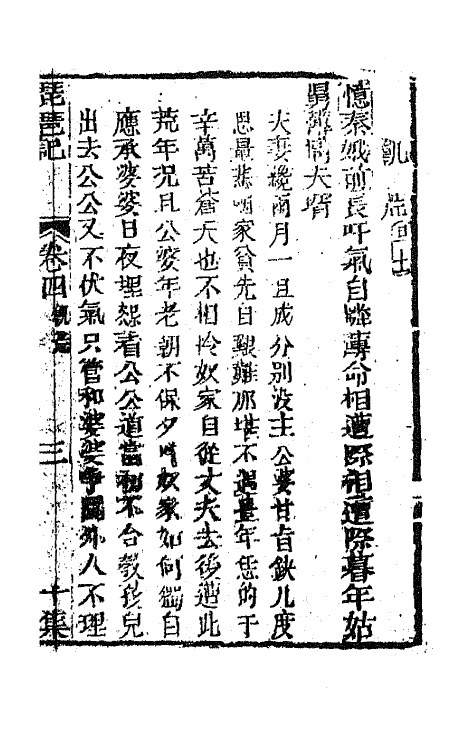 飢荒
憶秦娥前長吁氣自憐薄命相遭際相遭際暮年姑
舅薄情夫壻
夫妻纔兩月一旦成分別沒主公婆甘旨缺几度
思量悲咽家貧先自艱難那堪不遇豊年恁的千
辛萬苦蒼天也不相怜奴家自從丈夫去後遭此
荒年况且公婆年老朝不保夕呌奴家如何獨自
應承婆婆日夜埋怨着公公道當初不合教孩兒
出去公公又不伏氣只管和婆婆爭鬧外人不理
琵琶記 卷四 三 十集